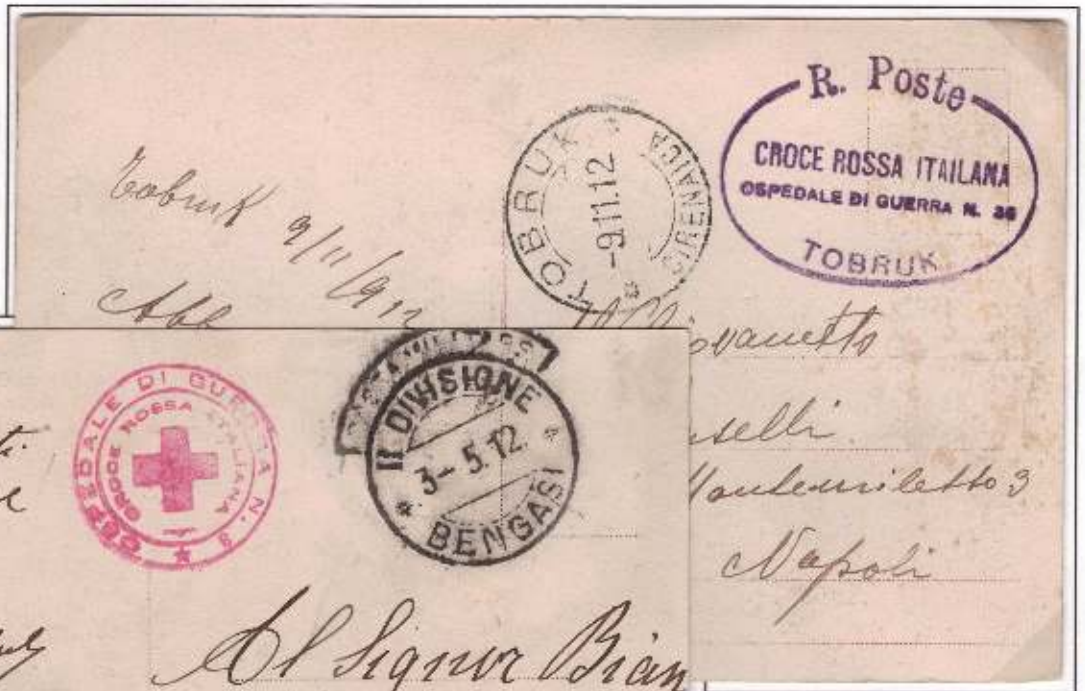 R. Poste
CROCE ROSSA ITAILANA
OSPEDALE DI GUERRA N. 36
TOBRUK
TOBRUK
-9.11.12
CIRENAICA
Tobruk 9/11/912
Napoli
OSPEDALE DI GUERRA N. 8
CROCE ROSSA ITALIANA
II DIVISIONE
3-5.12
BENGASI
Al Signor Bian